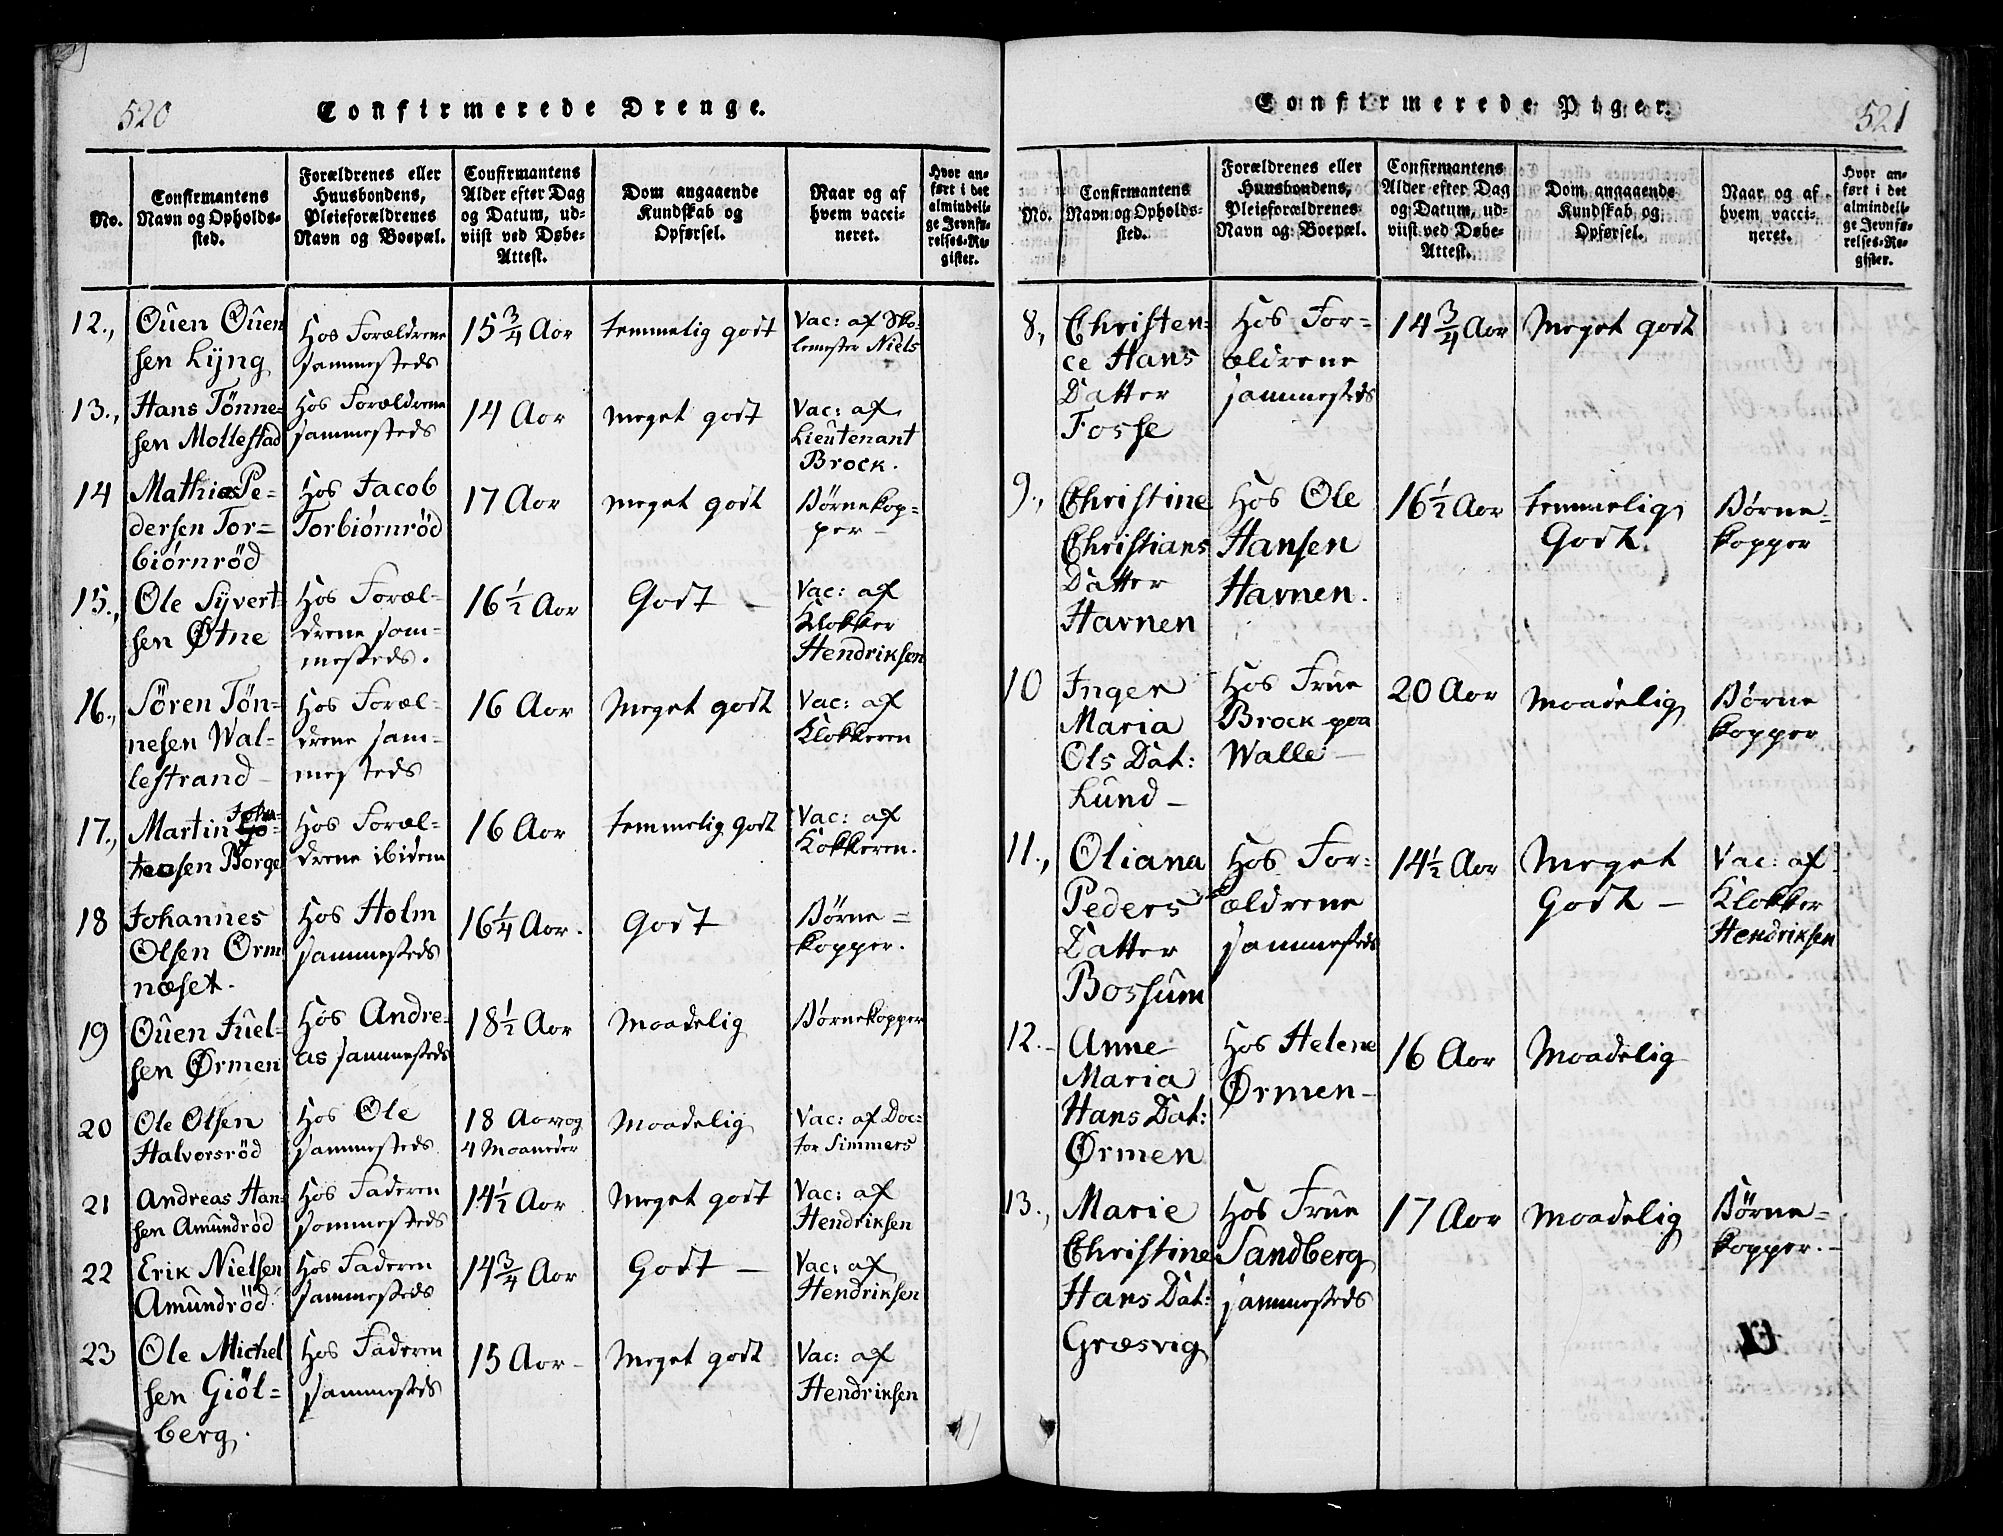 520
Confirmerede Drenge.
No.
Confirmantens
Navn og Opholds-
sted.
Forældrenes eller
Huusbondens,
Pleieforældrenes
Navn og Boepæl.
Confirmantens
Alder efter Dag
og Datum, ud-
viist ved Døbe-
Attest.
Dom angaaende
Kundskab og
Opførsel.
Naar og af
hvem vacci-
neret.
Hvor an-
ført i det
almindeli-
ge Jevnfø-
relses-Re-
gister.
12.,
Ouen Ouen
sen Lÿng
Hos Forældrene
sammesteds
15 3/4 Aar
temmelig godt
Vac: af Sko-
lemester Niels
13.,
Hans Tönne-
sen Mollestad
Hos Forældrene
sammesteds
14 Aar
meget godt
Vac: af
Lieutenant
Brock.
14
Mathias Pe-
dersen Tor-
biörnröd
Hos Jacob
Torbiörnröd
17 Aar
meget godt
Børnekop-
per
15.,
Ole Syvert-
sen Øtne
Hos Foræl-
drene sam-
mesteds.
16 1/2 Aar
Godt -
Vac: af
Klokker
Hendriksen
16.,
Sören Tön-
nesen Wal-
lestrand
Hos Foræl-
drene sam-
mesteds
16 Aar
Meget godt
Vac: af
Klokkeren
17.,
Martin Joha-
sen Borge
Hos Foræl-
drene ibidem
16 Aar
temmelig godt
Vac: af
Kokkeren.
18
Johannes
Olsen Orm
næset.
Hos Holm
sammesteds
16 1/4 Aar.
Godt
Børne-
kopper.
19
Ouen Juel-
sen Ørmen
Hos Andre-
as sammesteds
18 1/2 Aar
Maadelig
Børnekopper
20
Ole Olsen
Halvorsröd
Hos Ole
sammesteds
18 Aar og
4 Maaneder
Maadelig
Vac: af Doc-
tor Simmers
21
Andreas Han-
sen Amundröd
Hos Faderen
sammesteds
14 1/2 Aar
Meget godt
Vac: af
Hendriksen
22
Erik Nielsen
Amundröd
Hos Faderen
sammesteds
14 3/4 Aar
Godt -
Vac: af
Hendriksen
23
Ole Michel
sen Giöl-
berg.
Hos Faderen
sammesteds
15 Aar-
Meget godt
Vac: af
Hendriksen
Confirmerede Piger.
521
No.
Confirmantens
Navn og Opholds-
sted.
Forældrenes eller
Huusbondens,
Pleieforældrenes
Navn og Boepæl.
Confirmantens
Alder efter Dag
og Datum, ud-
viist ved Døbe-
Attest.
Dom angaaende
Kundskab og
Opførsel.
Naar og af
hvem vacci-
neret.
Hvor an-
ført i det
almindeli-
ge Jevnfø-
relses-Re-
gister.
8,
Christen-
ce Hans
Datter
Fosse
Hos For-
ældrene
sammesteds
14 3/4 Aar
Meget godt
9.,
Christine
Christians
Datter
Havnen
Hos Ole
Hansen
Havnen.
16 1/2 Aar
temmelig
Godt.
Børne-
kopper
10
Inger
Maria
Ols Dat:
Lund -
Hos Frue
Brock paa
Walle -
20 Aar
Maadelig
Børne
kopper
11.,
Oliana
Peders
Datter
Bossum
Hos For-
ældrene
sammesteds
14 1/2 Aar
Meget
Godt -
Vac: af
Klokker
Hendriksen
12.-
Anne
Maria
Hans Dat:
Ørmen
Hos Helene
Ørmen -
16 Aar
Maadelig
13.,
Marie
Christine
Hans Dat:
Græsvig
Hos Frue
Sandberg
sammesteds
17 Aar
Maadelig
Børne-
kopper.-